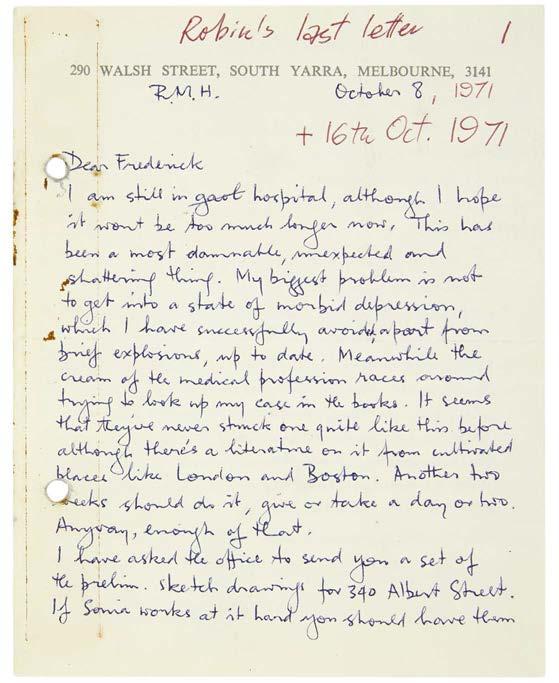 Robin's last letter 1
290 WALSH STREET, SOUTH YARRA, MELBOURNE, 3141
R.M.H. October 8, 1971
+ 16th Oct. 1971
Dear Frederick
I am still in gaol hospital, although I hope
it wont be too much longer now. This has
been a most damnable, unexpected and
shattering thing. My biggest problem is not
to get into a state of morbid depression,
which I have successfully avoided, apart from
brief explosions, up to date. Meanwhile the
cream of the medical profession races around
trying to look up my case in the books. It seems
that they've never struck one quite like this before
although there's a literature on it from cultivated
places like London and Boston. Another two
weeks should do it, give or take a day or two.
Anyway, enough of that.
I have asked the office to send you a set of
the prelim. sketch drawings for 340 Albert Street.
If Sonia works at it hard you should have them